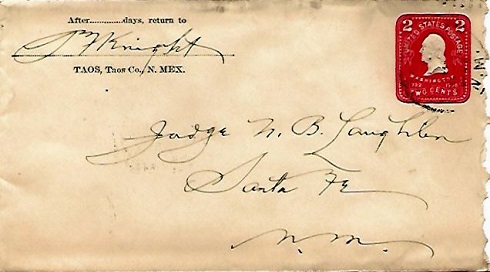 After..............days, return to
Knight
TAOS, Taos Co., N. MEX.
2 2
UNITED STATES POSTAGE
WASHINGTON
TWO CENTS
N.M.
Judge N. B. Laughlin
Santa Fe
N. M.